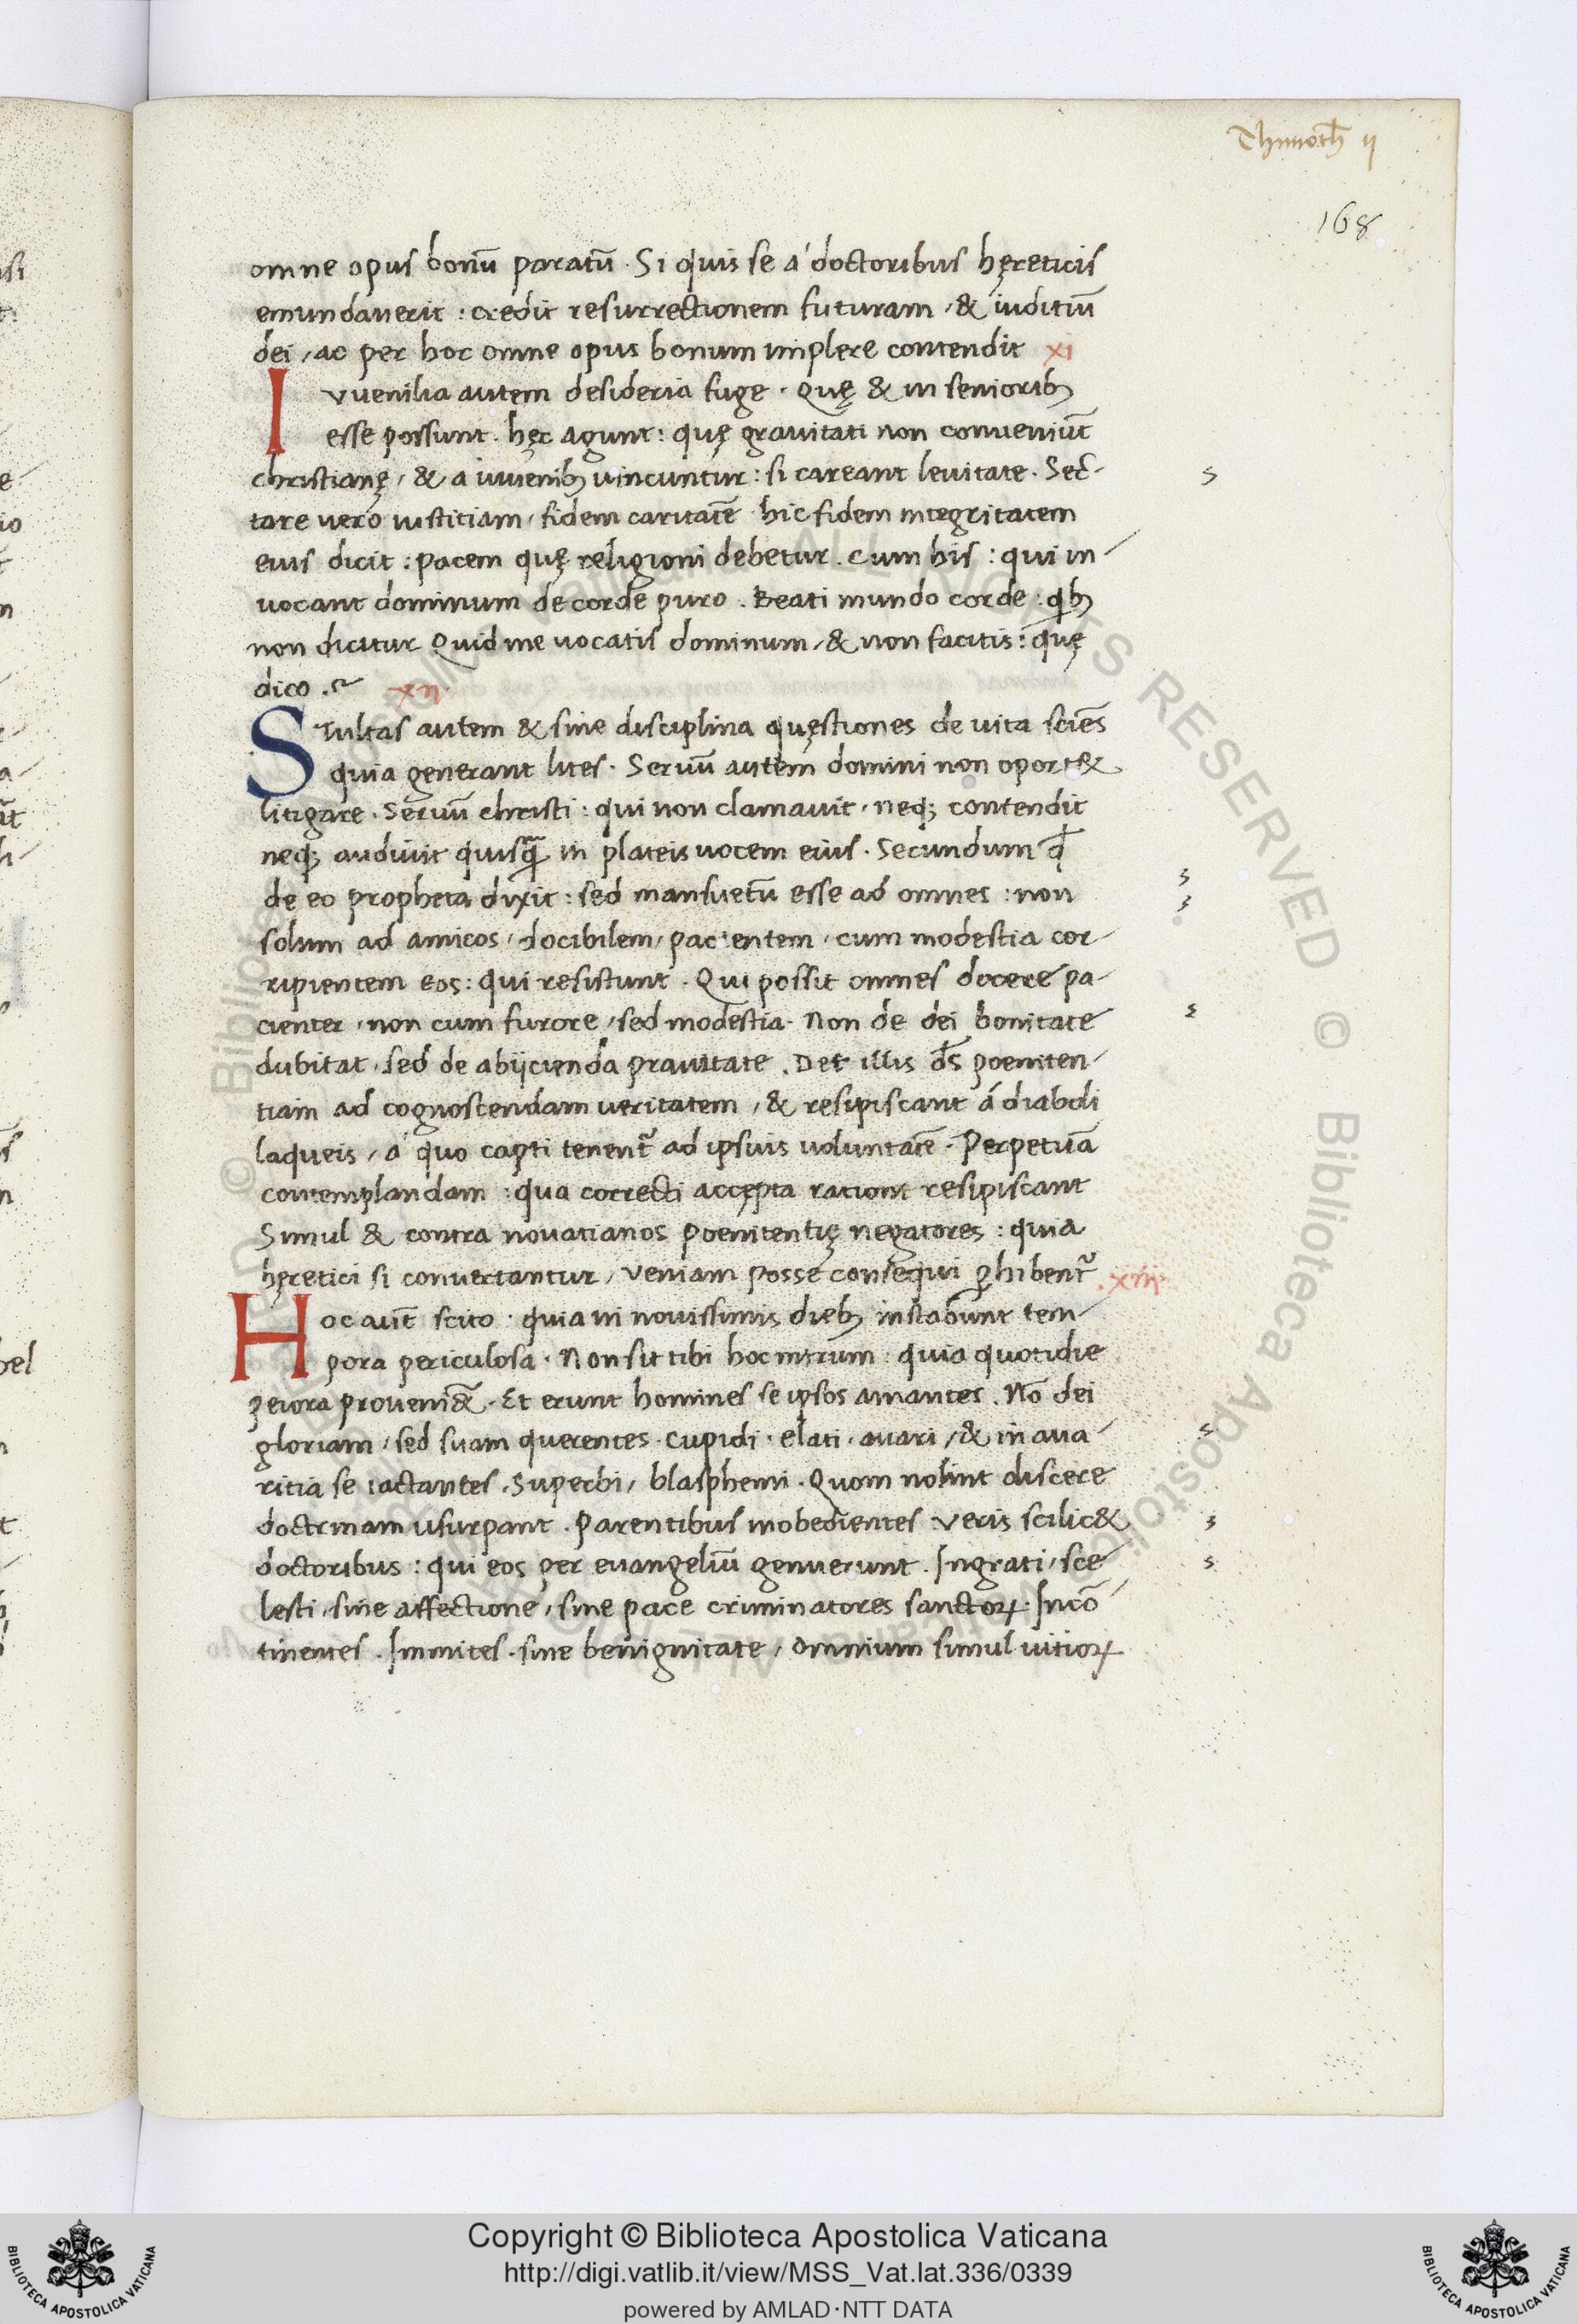 Thimoth̄ ii
168
omne opus bonū paratū. Si quis se a' doctoribus hęreticis
emundaverit: credit resurrectionem futuram, & iuditiū
dei, ac per hoc omne opus bonum implere contendit xi
Iuvenilia autem desideria fuge. Quę & in seniorib;
esse possunt. hęc agunt: quę gravitati non conveniūt
christianę, & a iuvenib; vincuntur: si careant levitate. Sec-
tare vero iustitiam, fidem caritatē hic fidem integritatem
eius dicit: pacem quę religioni debetur. Cum his: qui in
vocant dominum de corde puro. Beati mundo corde: qib;
non dicitur Quid me vocatis dominum, & non facitis: quę
dico. xii.
Stultas autem & sine disciplina quęstiones de vita sciēs
quia generant lites. Servū autem domini non oport&
litigare. Servū christi: qui non clamavit, neq; contendit
neq; audivit quisq̄ in plateis vocem eius. Secundum qđ
de eo propheta dixit: sed mansuetū esse ad omnes: non
solum ad amicos, docibilem, pacientem, cum modestia cor-
ripientem eos: qui resistunt. Qui possit omnes docere pa-
cienter, non cum furore, sed modestia. Non de dei bonitate
dubitat, sed de abijcienda pravitate. Det illis d̄s poeniten-
tiam ad cognoscendam veritatem, & resipiscant á diaboli
laqueis, a' quo capti tenent̄ ad ipsius voluntatē. Perpetuā
contemplandam: qua correcti accępta rationt resipiscant
Simul & contra novatianos poenitentię negatores: quia
hęretici si convertantur, veniam posse consequi ꝓhibent̄ .xiij.
Hoc aūt scito: quia in novissimis dieb; instabunt tem-
pora periculosa. Non sit tibi hoc mirum: quia quotidie
peiora proveni&̄. Et erunt homines se ipsos amantes. Nō dei
gloriam, sed suam querentes. Cupidi. elati. avari, & in ava-
ritia se iactantes. Superbi, blasphemi. Quom nolint discere
doctrinam usurpant. Parentibus inobedientes veris scilic&
doctoribus: qui eos per evangeliū genuerunt. Ingrati, sce-
lesti, sine affectione, sine pace criminatores sanctoꝝ. Incō
tinentes. Immites. sine benignitate, omnium simul vitioꝝ
Copyright © Biblioteca Apostolica Vaticana
http://digi.vatlib.it/view/MSS_Vat.lat.336/0339
powered by AMLAD·NTT DATA